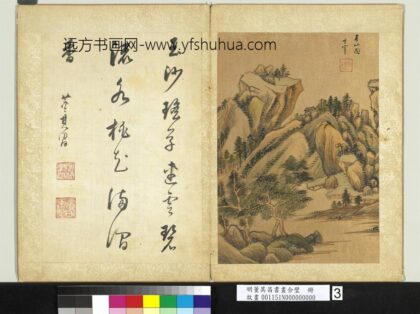 远方书画网：www.yfshuhua.com
玉沙瑤草連 碧
流水桃花滿澗
香
董其昌
玄宰
明董其昌書畫合璧 冊
故畫 001151N000000000
3